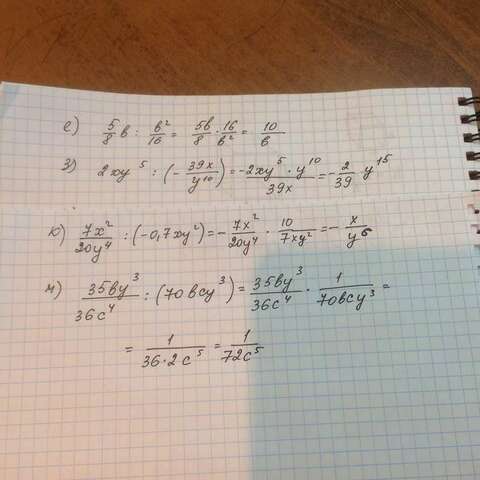 е) 5/8 в : в²/16 = 5в/8 · 16/в² = 10/в
з) 2xy⁵ : (- 39x/y¹⁰) = -2xy⁵ · y¹⁰/39x = - 2/39 y¹⁵
ю) 7x²/20y⁴ : (-0,7xy²) = - 7x²/20y⁴ · 10/7xy² = - x/y⁶
м) 35вy³/36c⁴ : (70вcy³) = 35вy³/36c⁴ · 1/70вcy³ =
= 1/36·2c⁵ = 1/72c⁵